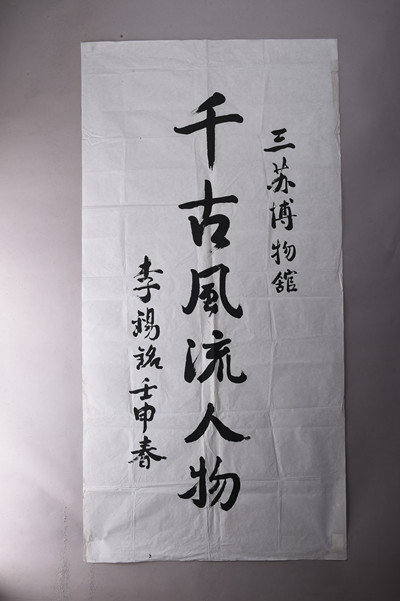 三苏博物舘
千古風流人物
李錫銘壬申春